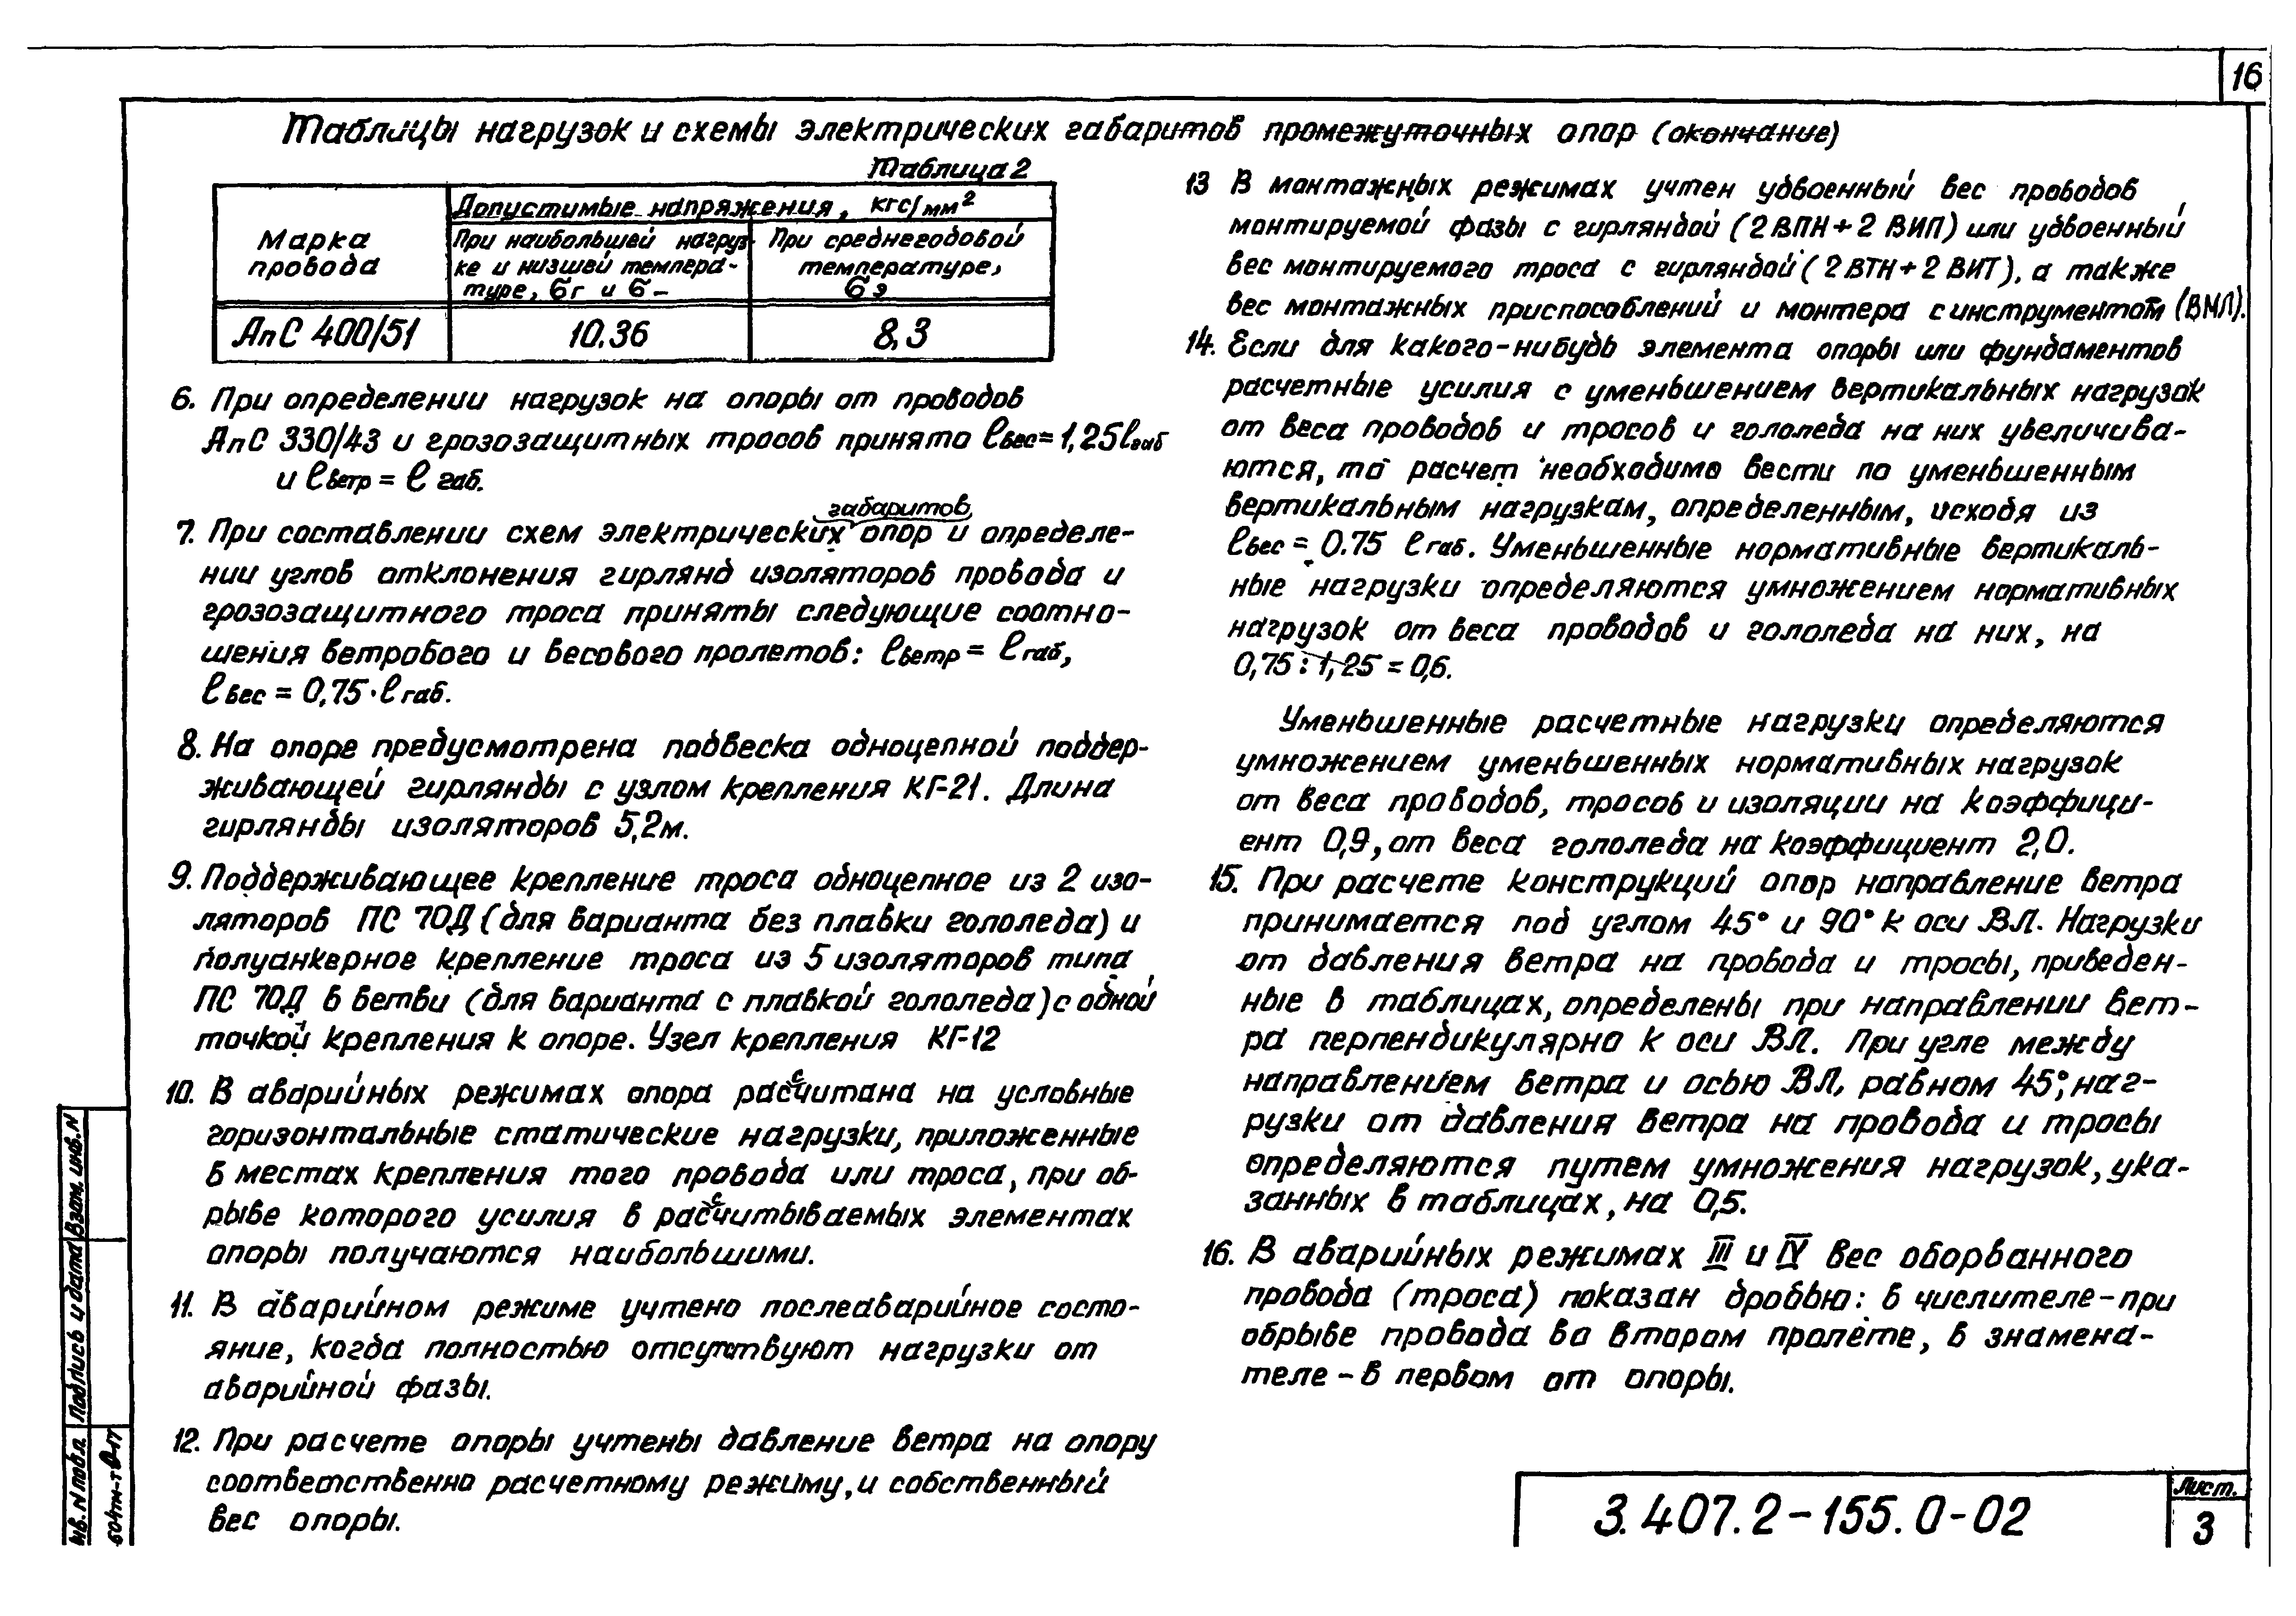 16
Таблицы нагрузок и схемы электрических габаритов промежуточных опор (окончание)
Таблица 2
Марка провода
Допустимые напряжения, кгс/мм²
При наибольшей нагруз-
ке и низшей темпера-
туре, σг и σ–
При среднегодовой
температуре,
σэ
АпС 400/51
10.36
8,3
6. При определении нагрузок на опоры от проводов
АпС 330/43 и грозозащитных тросов принято ℓвес = 1,25ℓгаб
и ℓветр = ℓ габ.
габаритов
7. При составлении схем электрических опор и определе-
нии углов отклонения гирлянд изоляторов провода и
грозозащитного троса приняты следующие соотно-
шения ветрового и весового пролетов: ℓветр = ℓгаб,
ℓвес = 0,75·ℓгаб.
8. На опоре предусмотрена подвеска одноцепной поддер-
живающей гирлянды с узлом крепления КГ-21. Длина
гирлянды изоляторов 5,2м.
9. Поддерживающее крепление троса одноцепное из 2 изо-
ляторов ПС 70Д (для варианта без плавки гололеда) и
полуанкерное крепление троса из 5 изоляторов типа
ПС 70Д в ветви (для варианта с плавкой гололеда) с одной
точкой крепления к опоре. Узел крепления КГ-12
10. В аварийных режимах опора рассчитана на условные
горизонтальные статические нагрузки, приложенные
в местах крепления того провода или троса, при об-
рыве которого усилия в рассчитываемых элементах
опоры получаются наибольшими.
11. В аварийном режиме учтено послеаварийное состо-
яние, когда полностью отсутствуют нагрузки от
аварийной фазы.
12. При расчете опоры учтены давление ветра на опору
соответственно расчетному режиму, и собственный
вес опоры.
13 В монтажных режимах учтен удвоенный вес проводов,
монтируемой фазы с гирляндой (2 ВПН + 2 ВИП) или удвоенный
вес монтируемого троса с гирляндой (2 ВТН + 2 ВИТ), а также
вес монтажных приспособлений и монтера с инструментом (ВМЛ).
14. Если для какого-нибудь элемента опоры или фундаментов
расчетные усилия с уменьшением вертикальных нагрузок
от веса проводов и тросов и гололеда на них увеличива-
ются, то расчет необходимо вести по уменьшенным
вертикальным нагрузкам, определенным, исходя из
ℓвес = 0.75 ℓгаб. Уменьшенные нормативные вертикаль-
ные нагрузки определяются умножением нормативных
нагрузок от веса проводов и гололеда на них, на
0,75 : 1,25 = 0,6.
Уменьшенные расчетные нагрузки определяются
умножением уменьшенных нормативных нагрузок
от веса проводов, тросов и изоляции на коэффици-
ент 0,9, от веса гололеда на коэффициент 2,0.
15. При расчете конструкций опор направление ветра
принимается под углом 45° и 90° к оси ВЛ. Нагрузки
от давления ветра на провода и тросы, приведен-
ные в таблицах, определены при направлении вет-
ра перпендикулярно к оси ВЛ. При угле между
направлением ветра и осью ВЛ, равном 45°, наг-
рузки от давления ветра на провода и тросы
определяются путем умножения нагрузок, ука-
занных в таблицах, на 0,5.
16. В аварийных режимах III и IV вес оборванного
провода (троса) показан дробью: в числителе – при
обрыве провода во втором пролете, в знамена-
теле – в первом от опоры.
Взам. инв. N
Подпись и дата
Инв. N подл.
3.407.2-155.0-02
Лист.
3